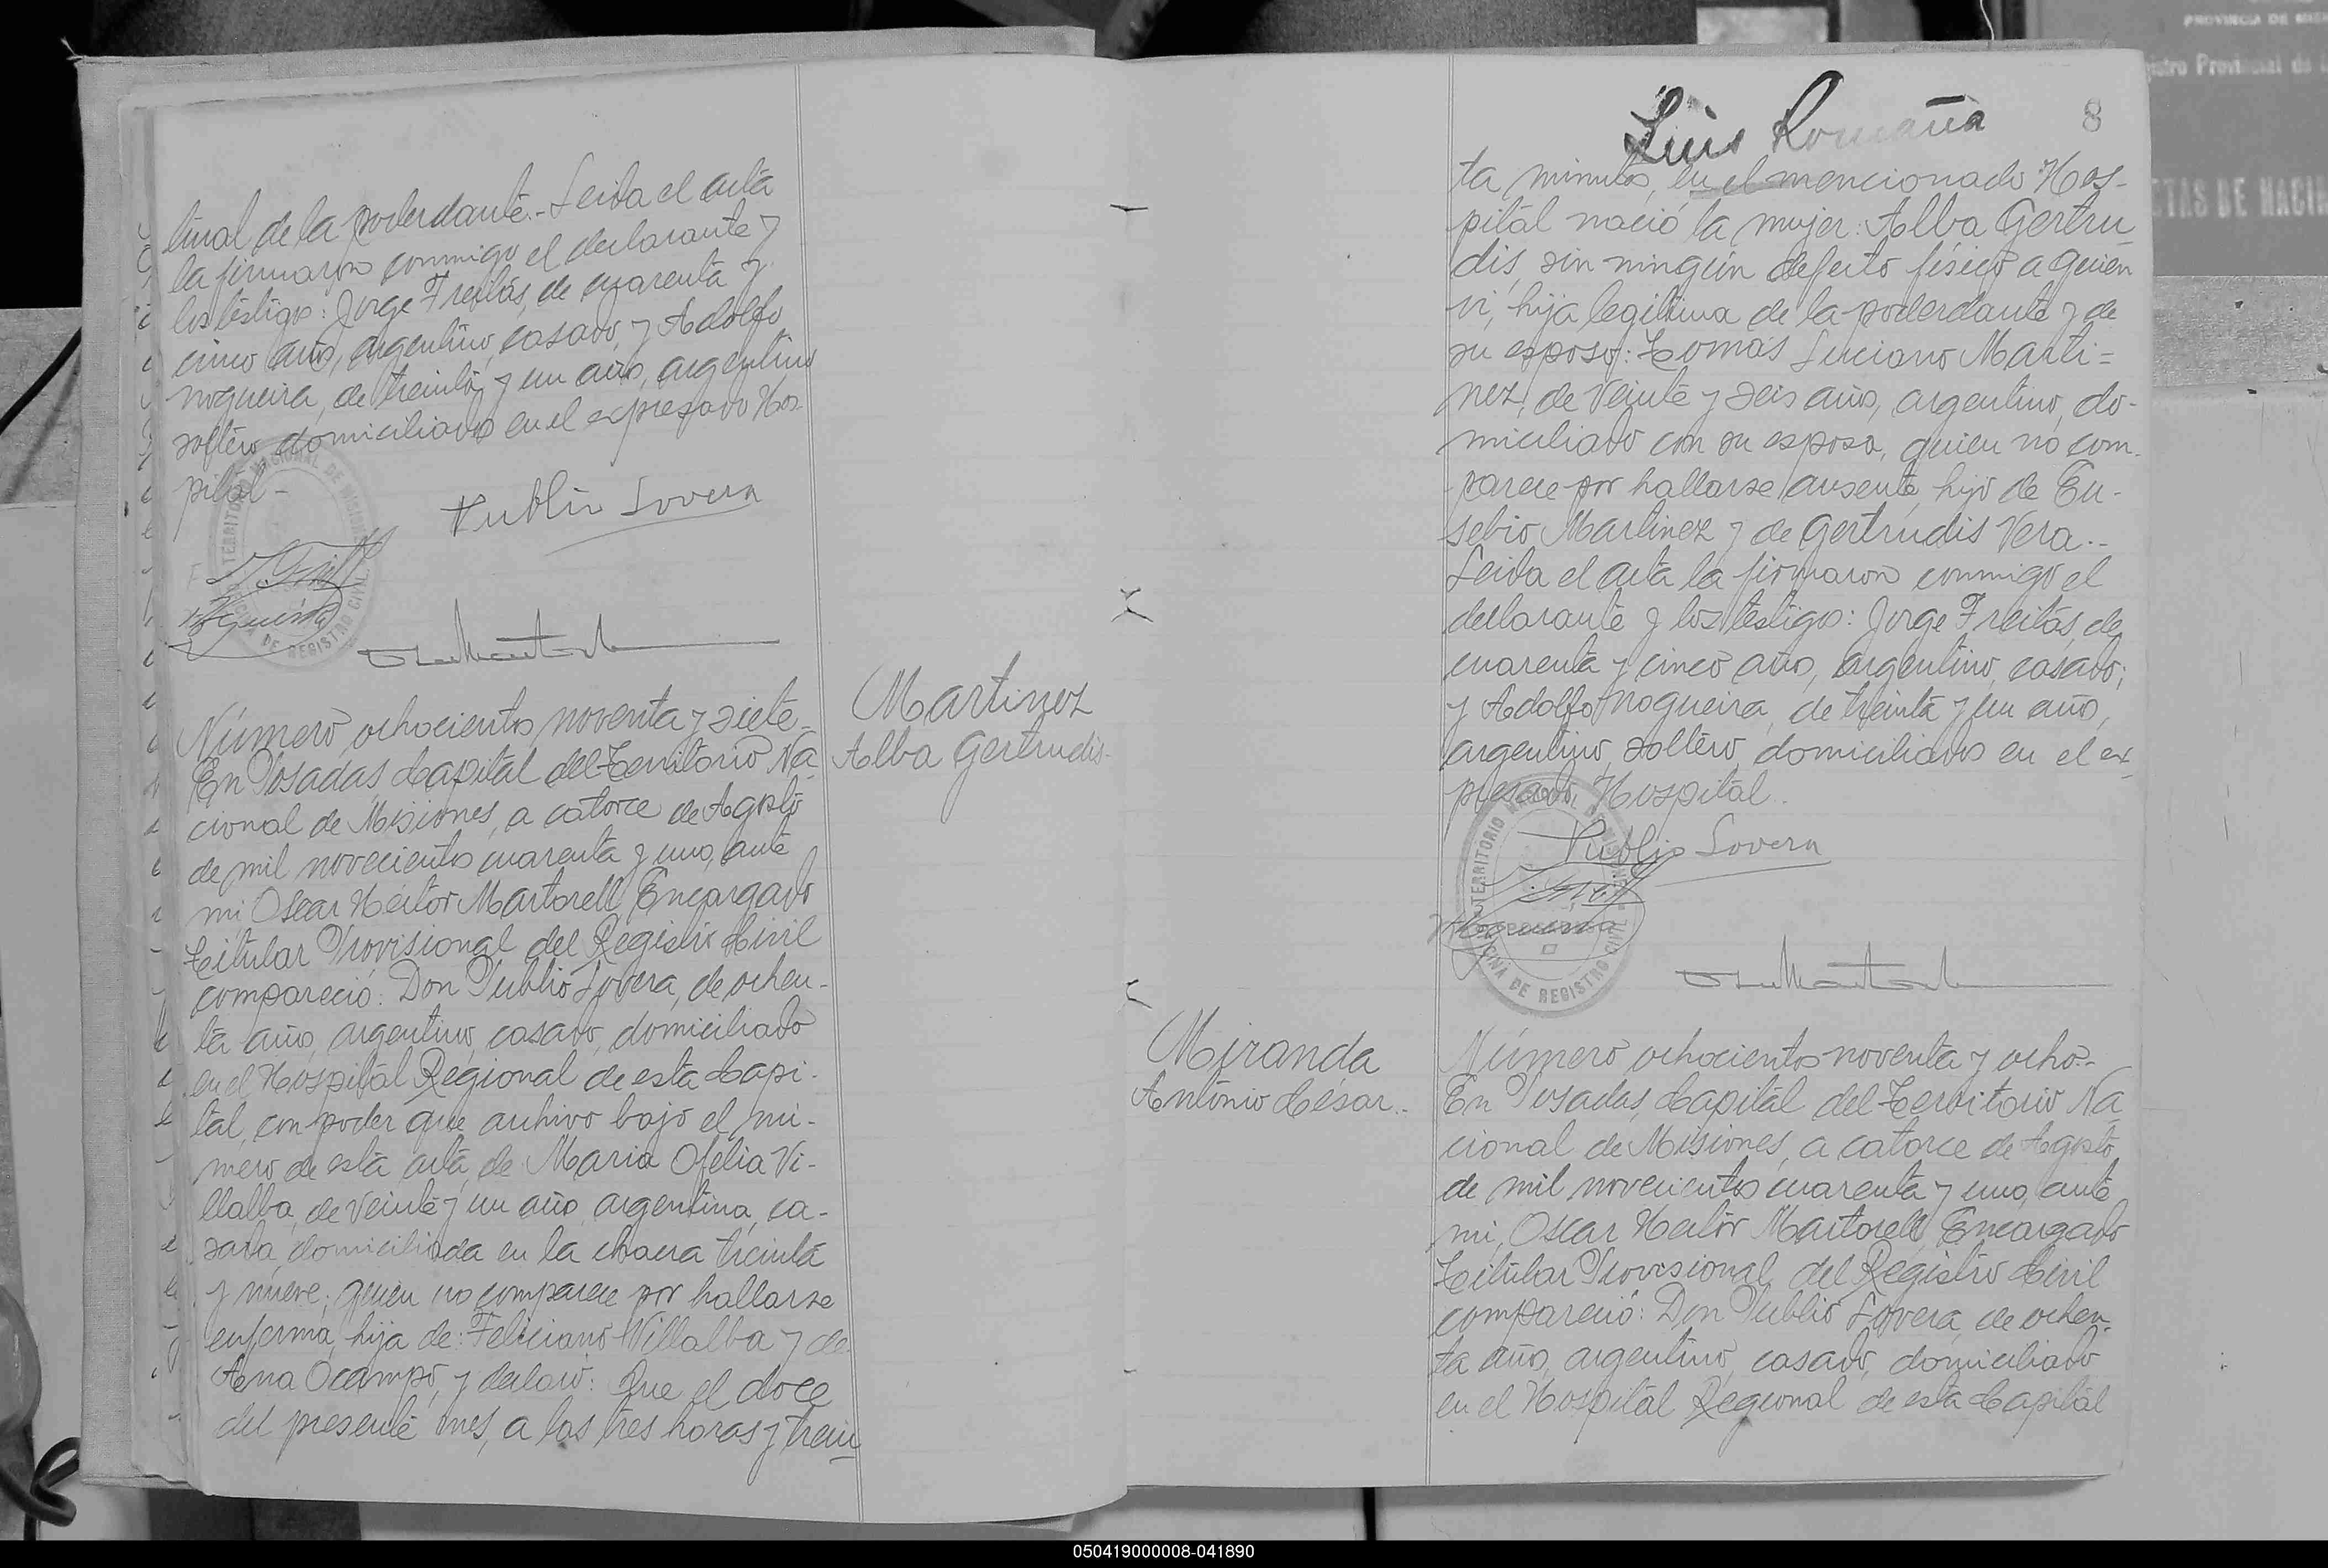 tural de la poderdante.- Leida el acta
la firmaron conmigo el declarante y
los testigos: Jorge Freitas, de cuarenta y
cinco años, argentino, casado, y Adolfo
Nogueira, de treinta y un años, argentino
soltero, domiciliados en el expresado Hos-
pital.-
Publio Lovera
Número ochocientos noventa y siete-
En Posadas, Capital del Territorio Na
cional de Misiones, a catorce de Agosto
de mil novecientos cuarenta y uno, ante
mi, Oscar Héctor Martorell, Encargado
Titular Provisional del Registro Civil
compareció: Don Publio Lovera, de ochen-
ta años, argentino, casado, domiciliado
en el Hospital Regional de esta Capi-
tal, con poder que archivo bajo el nú-
mero de esta acta, de Maria Ofelia Vi-
llalba, de veinte y un años, argentina, ca-
sada, domiciliada en la chacra treinta
y nueve; quien no comparece por hallarse
enferma, hija de: Feliciano Villalba y de
Ana Ocampo, y declaró: Que el doce
del presente mes, a las tres horas y trein
Martinez
Alba Gertrudis-
Luis Romaña
8
ta minutos, en el mencionado Hos-
pital nació la mujer: Alba Gertru
dis, sin ningún defecto físico a quien
vi, hija legitima de la poderdante y de
su esposo: Tomás Luciano Marti=
nez, de veinte y seis años, argentino, do-
miciliado con su esposa, quien no com-
parece por hallarse ausente, hijo de Eu-
sebio Martinez y de Gertrudis Vera.-
Leida el acta la firmaron conmigo el
declarante y los testigos: Jorge Freitas, de
cuarenta y cinco años, argentino, casado;
y Adolfo Nogueira, de treinta y un años,
argentino, soltero, domiciliados en el ex
presado Hospital.
TERRITORIO NACIONAL DE MISIONES
OFICINA DE REGISTRO CIVIL
Publio Lovera
Miranda
Antonio César.-
Número ochocientos noventa y ocho.-
En Posadas, Capital del Territorio Na
cional de Misiones, a catorce de Agosto
de mil novecientos cuarenta y uno, ante
mi, Oscar Hector Martorell, Encargado
Titular Provisional del Registro Civil
compareció: Don Publio Lovera, de ochen-
ta años, argentino, casado, domiciliado
en el Hospital Regional de esta Capital
050419000008-041890